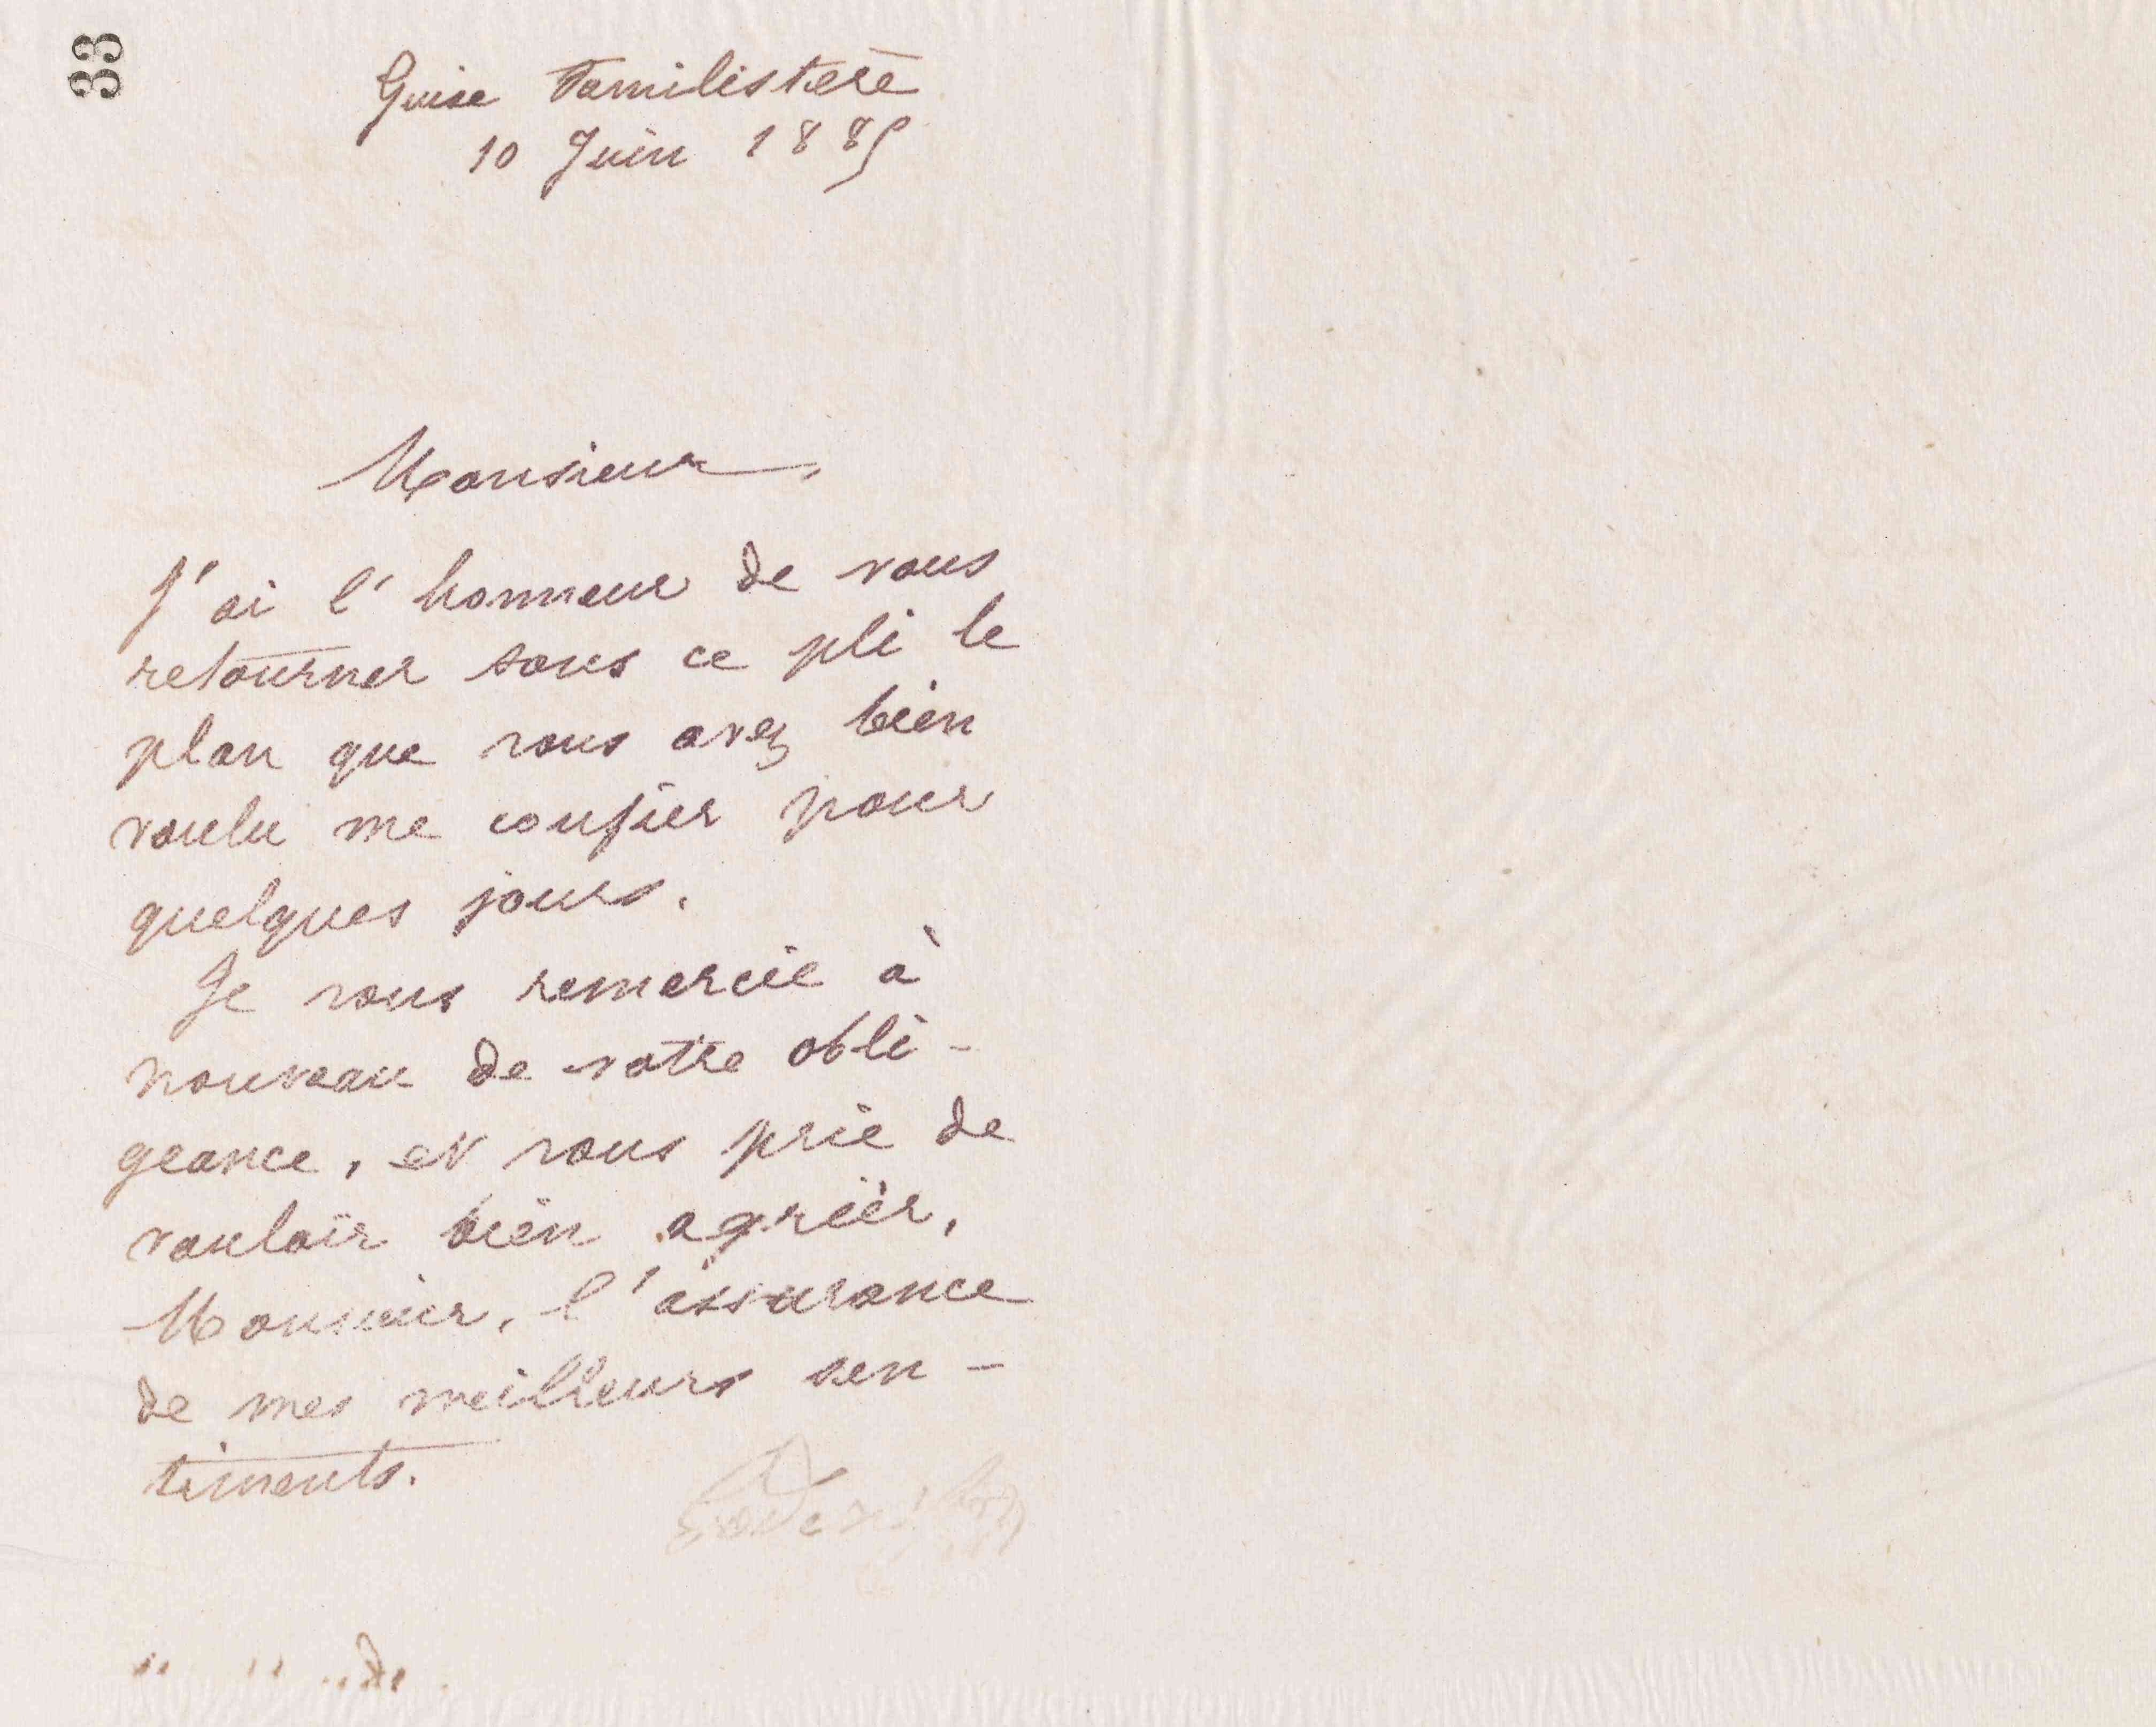 33
Guise Familistère
10 Juin 1885
Monsieur,
J'ai l'honneur de vous
retourner sous ce pli le
plan que vous avez bien
voulu me confier pour
quelques jours.
Je vous remercie à
nouveau de votre obli-
geance, et vous prie de
vouloir bien agréer,
Monsieur, l'assurance
de mes meilleurs sen-
timents.
Godin